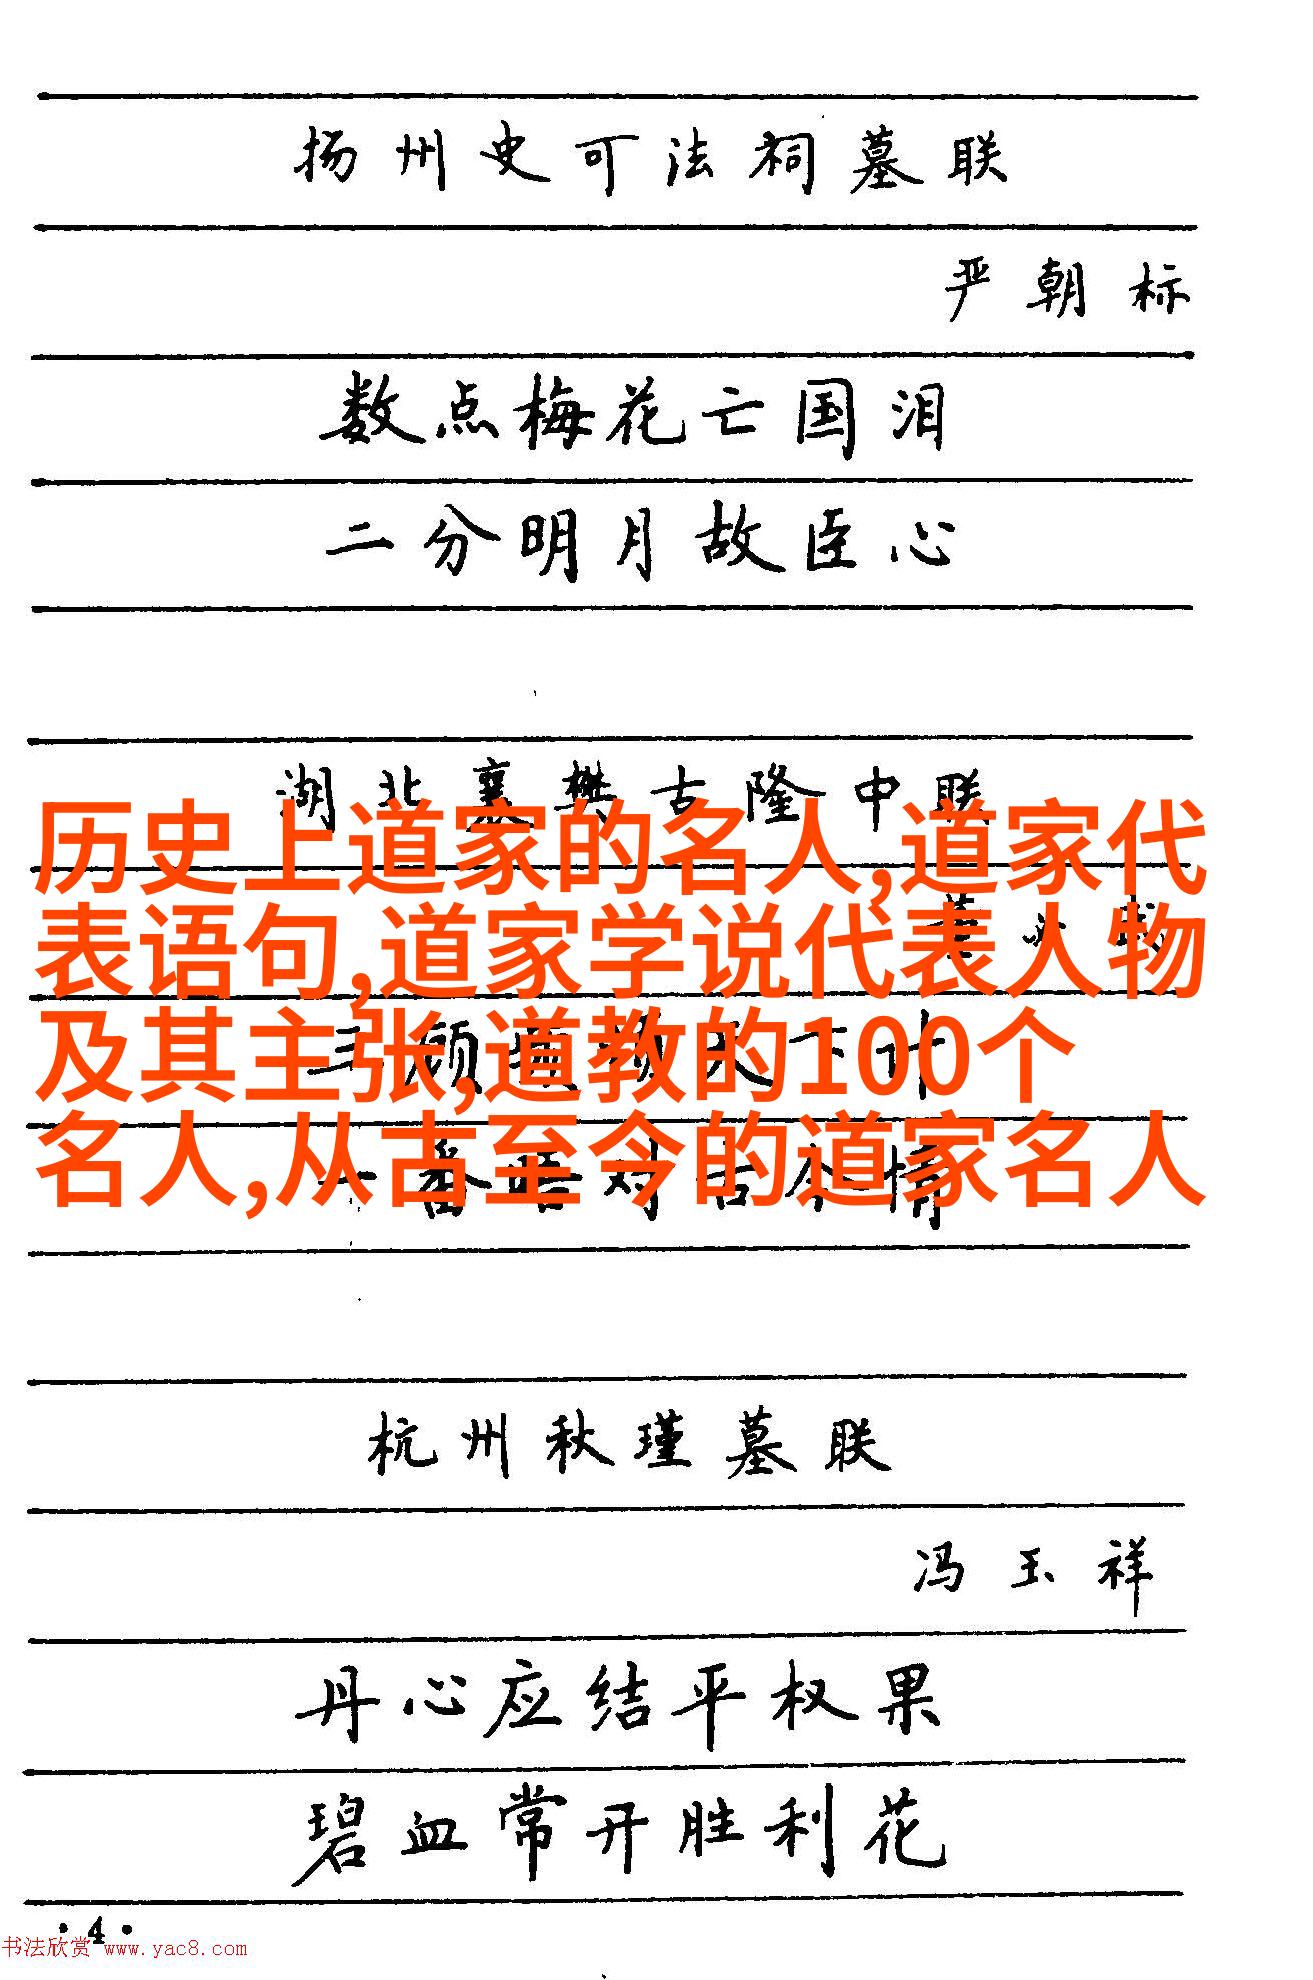 扬州史可法祠墓联
严朝标
数点梅花亡国泪
二分明月故臣心
湖北襄樊古隆中联
历史上道家的名人,道家代
表语句,道家学说代表人物
及其主张,道教的100个
名人,从古至今的道家名人
三顾频烦天下计
一番晤对古今情
杭州秋瑾墓联
冯玉祥
丹心应结平权果
碧血常开胜利花
·4·
书法欣赏 www.yac8.com